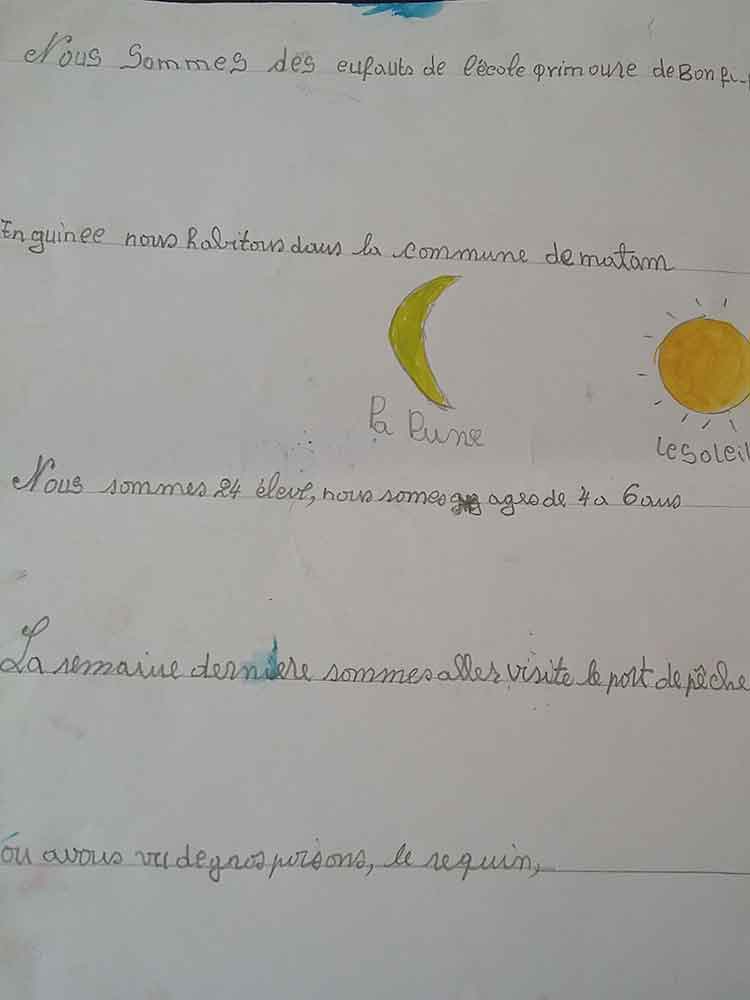 Nous Sommes des enfants de l'école primoure de Bonfi-
En guinee nous habitons dans la commune de matam
la lune
le soleil
Nous sommes 24 élevé, nous somes agesde 4 a 6 ans
La semaine derniere sommes aller visite le port de pêche
ou avons vu de gros poisons, le requin,